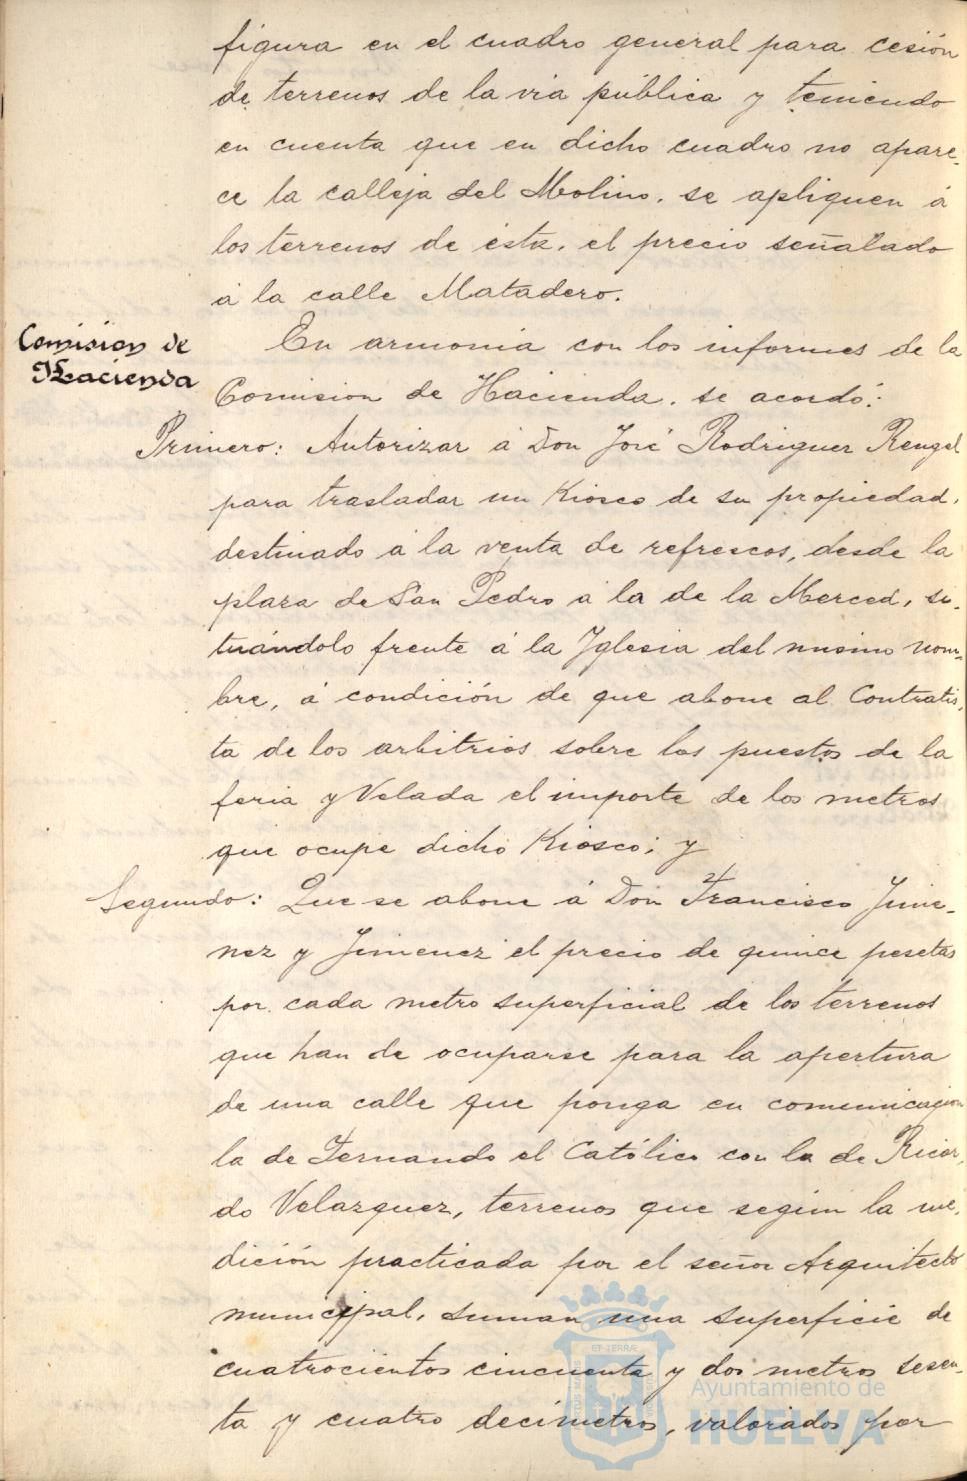 figura en el cuadro general para cesión
de terrenos de la via pública y teniendo
en cuenta que en dicho cuadro no apare-
ce la calleja del Molino, se apliquen á
los terrenos de ésta, el precio señalado
á la calle Matadero.
Comision de
Hacienda
En armonia con los informes de la
Comision de Hacienda, se acordó:
Primero: Autorizar á Don José Rodriguez Rengel
para trasladar un Kiosco de su propiedad,
destinado á la venta de refrescos, desde la
plaza de San Pedro á la de la Merced, si-
tuándolo frente á la Iglesia del mismo nom-
bre, á condición de que abone al Contratis-
ta de los arbitrios sobre los puestos de la
feria y Velada el importe de los metros
que ocupe dicho Kiosco; y
Segundo: Que se abone á Don Francisco Jime-
nez y Jimenez el precio de quince pesetas
por cada metro superficial de los terrenos
que han de ocuparse para la apertura
de una calle que ponga en comunicacion
la de Fernando el Católico con la de Ricar-
do Velazquez, terrenos que segun la me-
dición practicada por el señor Arquitecto
municipal, suman una superficie de
cuatrocientos cincuenta y dos metros sesen-
ta y cuatro decimetros, valorados por
ET TERRÆ
Ayuntamiento de
HUELVA